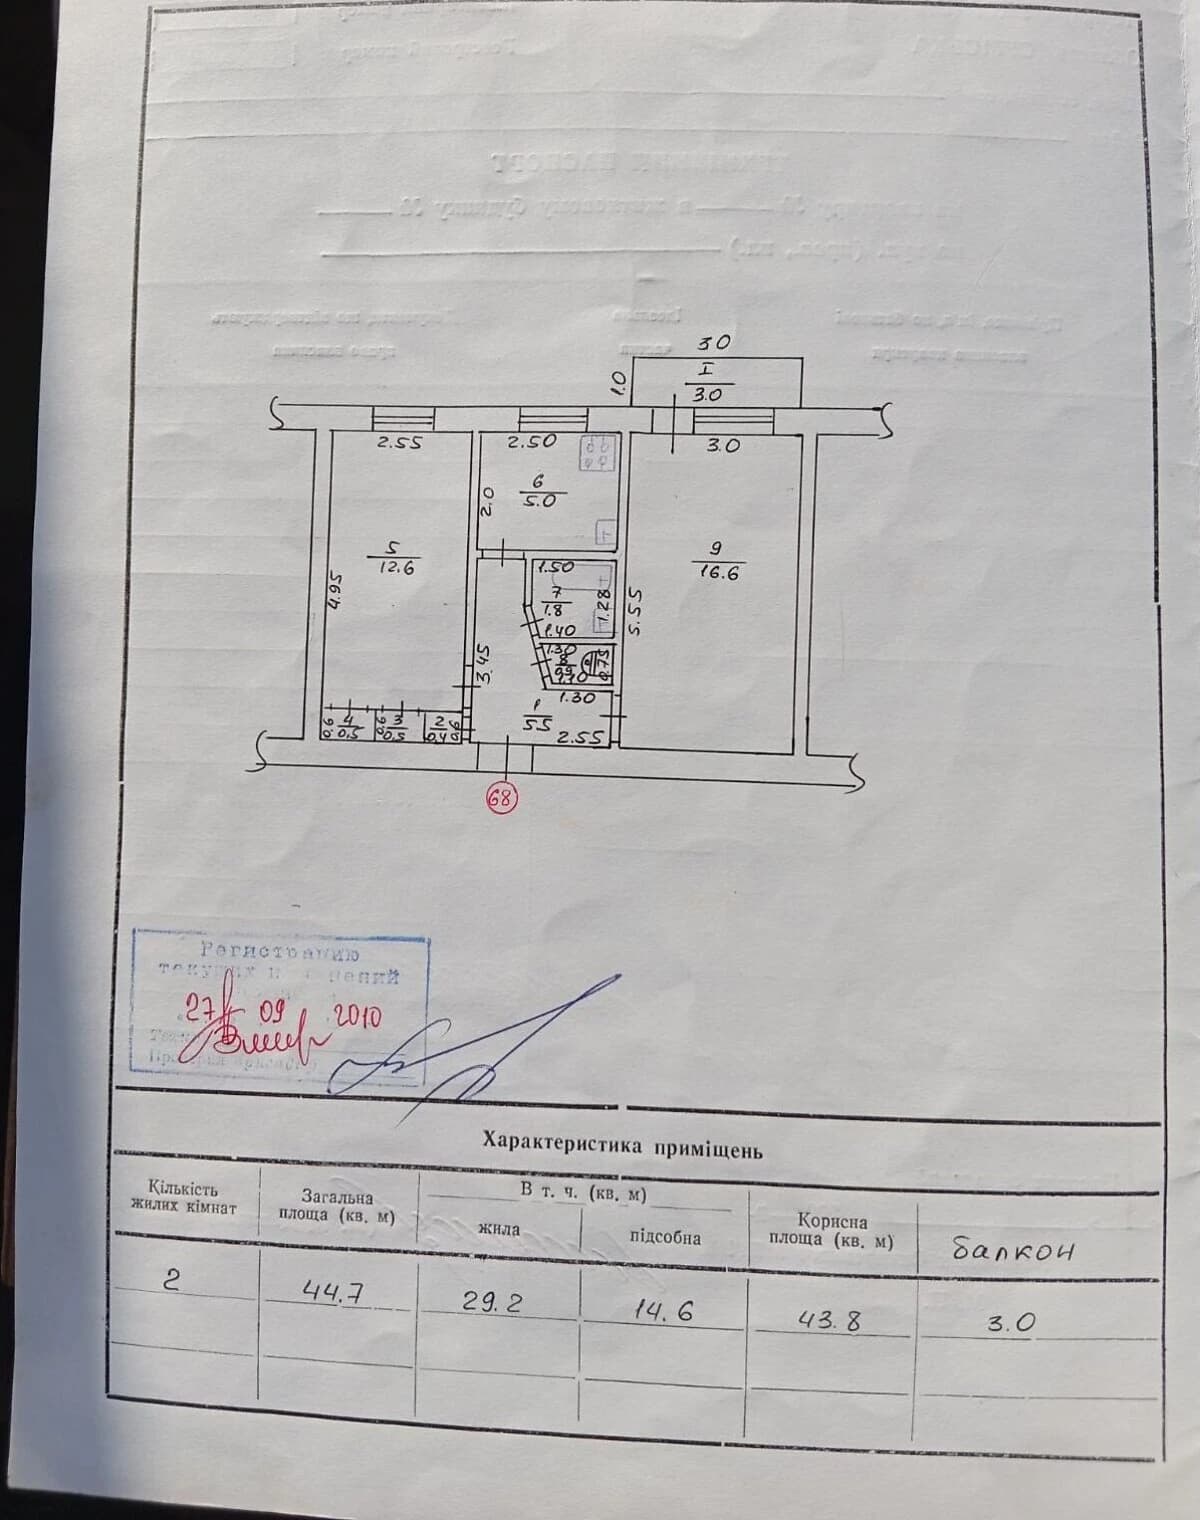 3.0
1.0
I
3.0
2.55
2.50
3.0
6
5.0
2.0
5
12.6
9
16.6
4.95
1.50
7
1.8
1.28
5.55
1.40
3.45
1.30
8
0.9
1.10
0.75
1.30
1
5.5
2.55
0.6
4
0.5
0.6
3
0.5
2
0.4
0.6
68
Регистрацию
27 09 2010
Характеристика приміщень
Кількість
жилих кімнат
Загальна
площа (кв. м)
В т. ч. (кв. м)
жила
підсобна
Корисна
площа (кв. м)
балкон
2
44.7
29.2
14.6
43.8
3.0